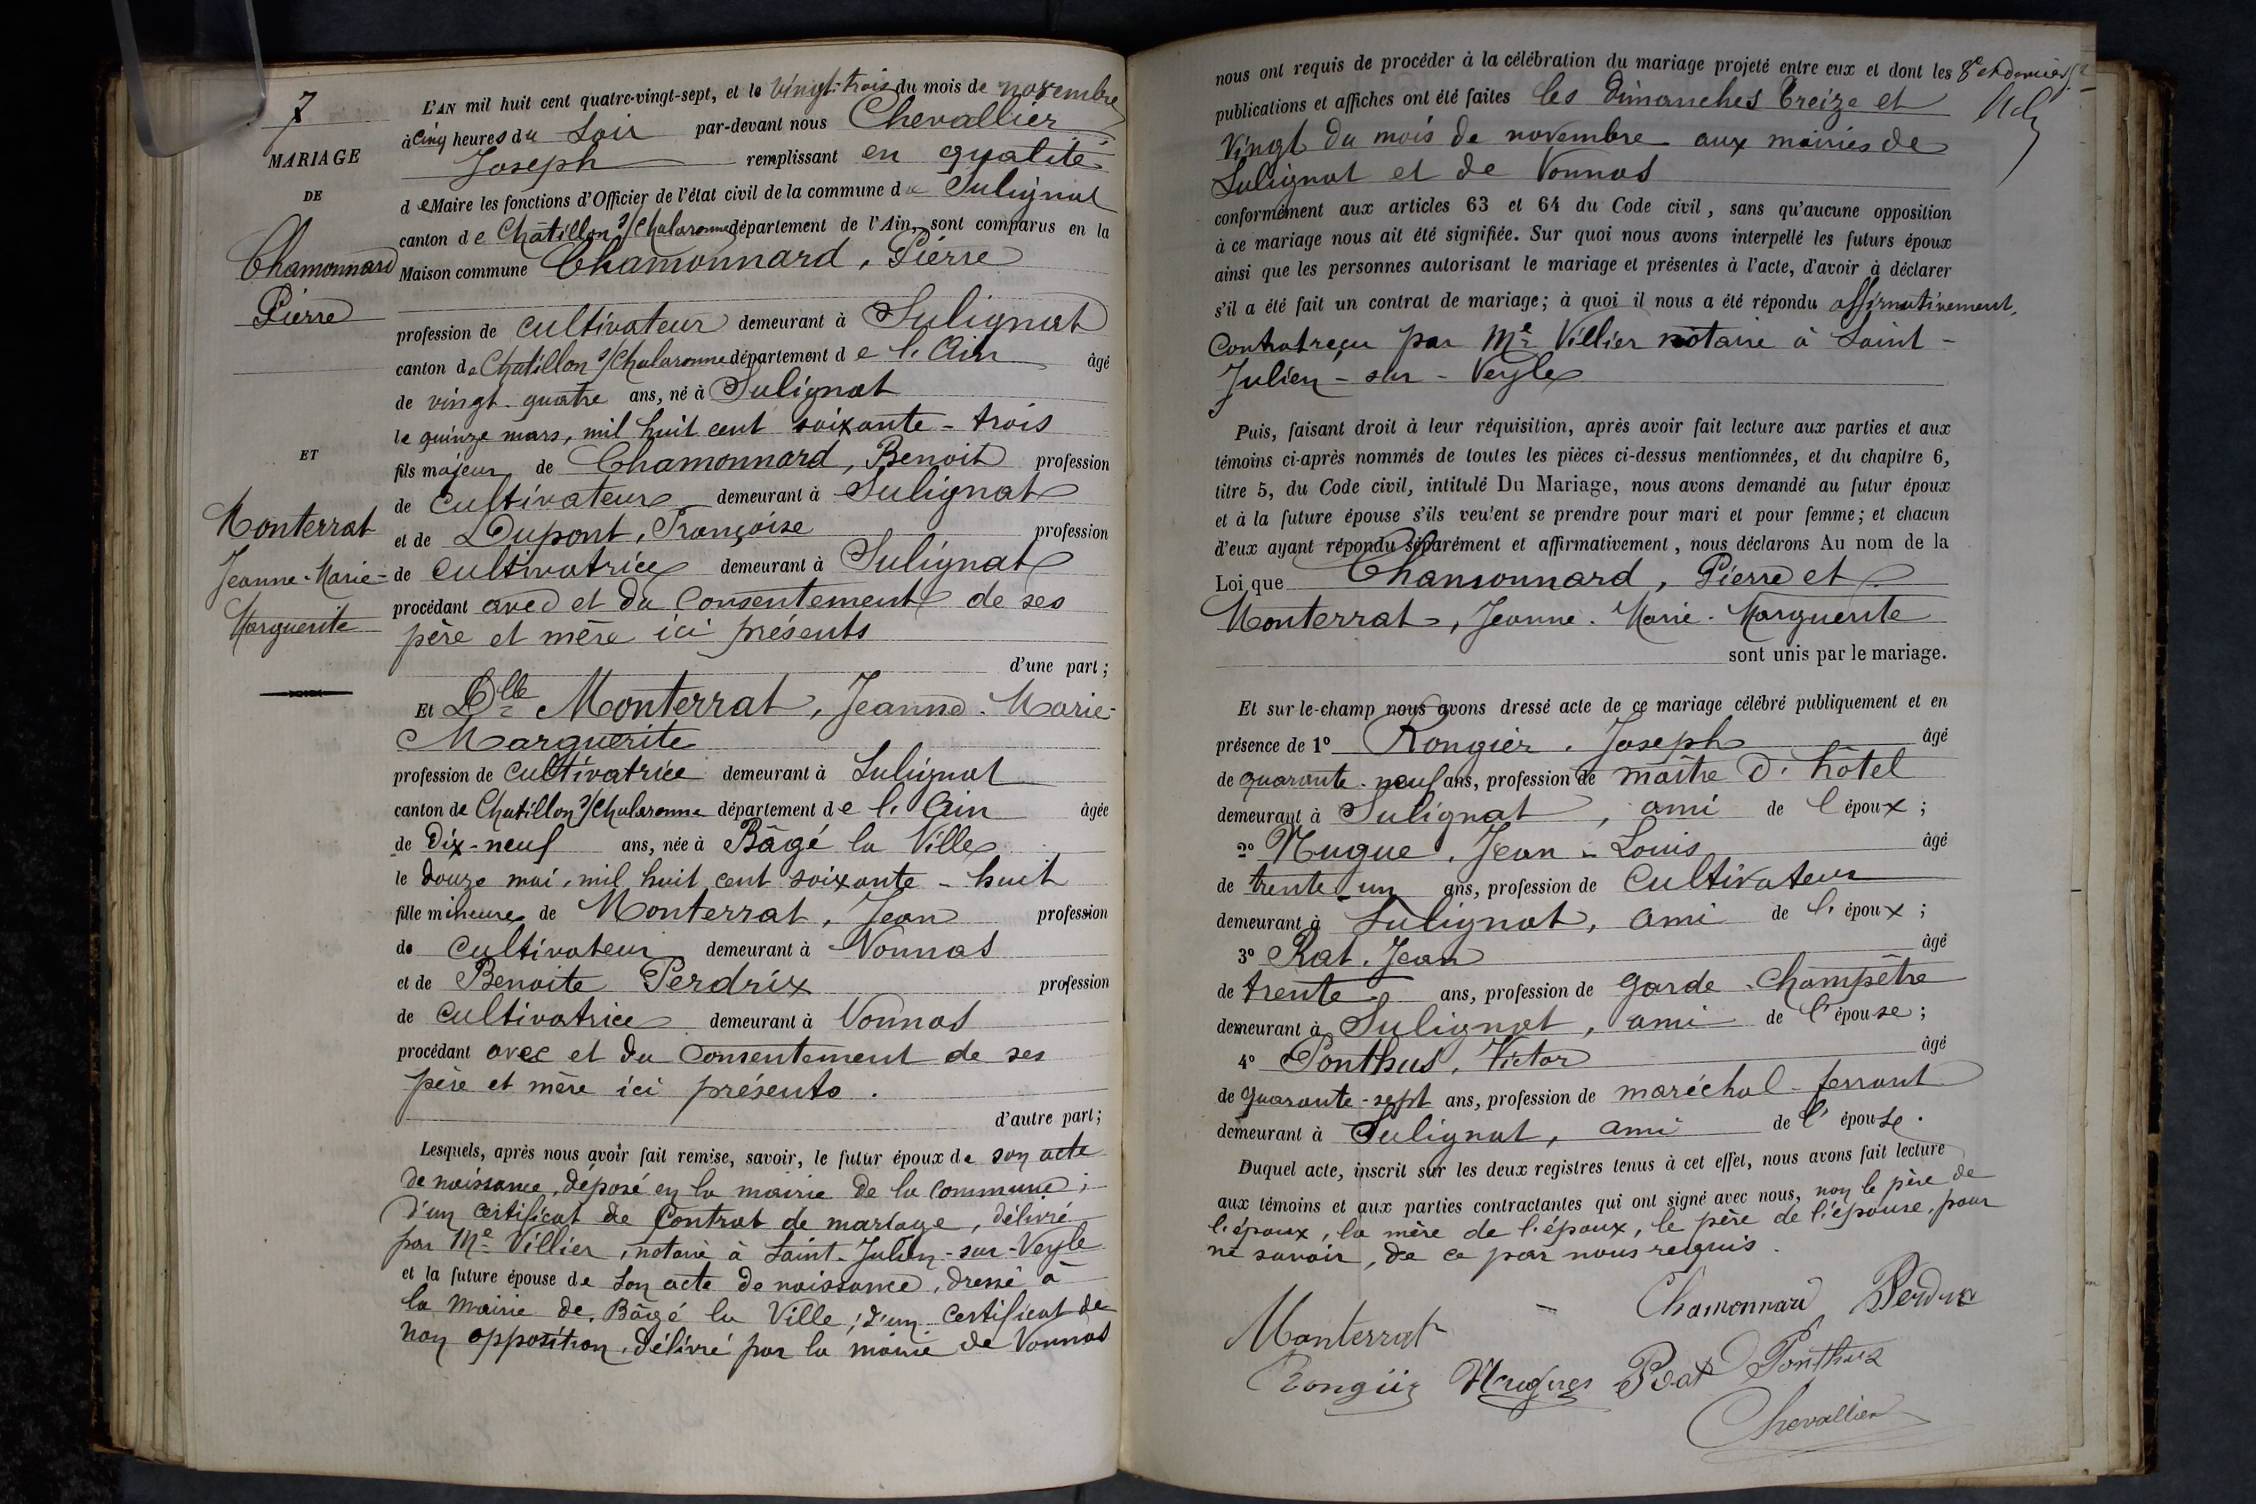 7
MARIAGE
DE
Chamonnard
Pierre
ET
Monterrat
Jeanne-Marie-
Marguerite
L'AN mil huit cent quatre-vingt-sept, et le vingt-trois du mois de novembre
à cinq heures du Soir par-devant nous Chevallier
Joseph remplissant en qualité
de Maire les fonctions d'Officier de l'état civil de la commune de Sulignat
canton de Châtillon s/Chalaronne département de l'Ain, sont comparus en la
Maison commune Chamonnard, Pierre
profession de cultivateur demeurant à Sulignat
canton de Chatillon s/Chalaronne département de l'Ain âgé
de vingt-quatre ans, né à Sulignat
le quinze mars, mil huit cent soixante-trois
fils majeur de Chamonnard, Benoit profession
de cultivateur demeurant à Sulignat
et de Dupont, Françoise profession
de cultivatrice demeurant à Sulignat
procédant avec et du consentement de ses
père et mère ici présents
d'une part;
Et Dlle Monterrat, Jeanne-Marie-
Marguerite
profession de cultivatrice demeurant à Sulignat
canton de Chatillon s/Chalaronne département de l'Ain âgée
de Dix-neuf ans, née à Bâgé la Ville
le douze mai, mil huit cent soixante-huit
fille mineure de Monterrat, Jean profession
de cultivateur demeurant à Vonnas
et de Benoite Perdrix profession
de cultivatrice demeurant à Vonnas
procédant avec et du consentement de ses
père et mère ici présents.
d'autre part;
Lesquels, après nous avoir fait remise, savoir, le futur époux de son acte
de naissance, déposé en la mairie de la commune;
d'un certificat de Contrat de mariage, délivré
par Me Villier, notaire à Saint-Julien-sur-Veyle
et la future épouse de son acte de naissance, dressé à
la Mairie de Bâgé la Ville; d'un certificat de
non opposition, délivré par la mairie de Vonnas
nous ont requis de procéder à la célébration du mariage projeté entre eux et dont les 8e et dernier
publications et affiches ont été faites les Dimanches treize et
Vingt du mois de novembre aux mairies de
Sulignat et de Vonnas
conformément aux articles 63 et 64 du Code civil, sans qu'aucune opposition
à ce mariage nous ait été signifiée. Sur quoi nous avons interpellé les futurs époux
ainsi que les personnes autorisant le mariage et présentes à l'acte, d'avoir à déclarer
s'il a été fait un contrat de mariage; à quoi il nous a été répondu affirmativement,
Contrat reçu par Me Villier notaire à Saint-
Julien-sur-Veyle
Puis, faisant droit à leur réquisition, après avoir fait lecture aux parties et aux
témoins ci-après nommés de toutes les pièces ci-dessus mentionnées, et du chapitre 6,
titre 5, du Code civil, intitulé Du Mariage, nous avons demandé au futur époux
et à la future épouse s'ils veu'ent se prendre pour mari et pour femme; et chacun
d'eux ayant répondu séparément et affirmativement, nous déclarons Au nom de la
Loi que Chamonnard, Pierre et
Monterrat, Jeanne-Marie-Marguerite
sont unis par le mariage.
Et sur-le-champ nous avons dressé acte de ce mariage célébré publiquement et en
présence de 1º Rongier, Joseph âgé
de quarante-neuf ans, profession de maître d'hôtel
demeurant à Sulignat, ami de l'époux;
2º Nugue, Jean-Louis âgé
de trente-un ans, profession de Cultivateur
demeurant à Sulignat, ami de l'époux;
3º Rat, Jean âgé
de trente ans, profession de garde-Champêtre
demeurant à Sulignat, ami de l'épouse;
4º Ponthus, Victor âgé
de quarante-sept ans, profession de maréchal-ferrant
demeurant à Sulignat, ami de l'épouse.
Duquel acte, inscrit sur les deux registres tenus à cet effet, nous avons fait lecture
aux témoins et aux parties contractantes qui ont signé avec nous, non le père de
l'époux, la mère de l'époux, le père de l'épouse, pour
ne savoir, de ce par nous requis.
Chamonnard Perdrix
Monterrat
Rongier Nugues Rat Ponthus
Chevallier